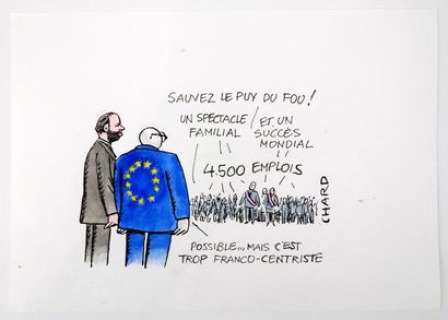 SAUVEZ LE PUY DU FOU !
UN SPECTACLE
FAMILIAL
ET UN
SUCCÈS
MONDIAL
4500 EMPLOIS
CHARD
POSSIBLE... MAIS C'EST
TROP FRANCO-CENTRISTE